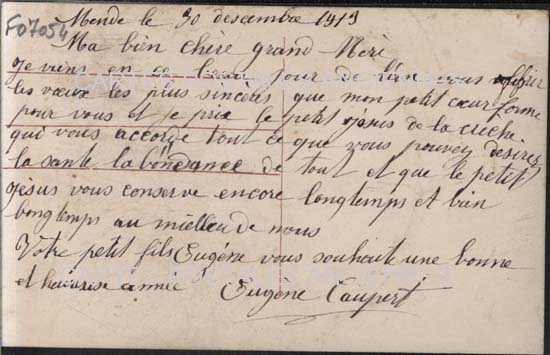 F07054
Mende le 30 descembre 1913
Ma bien chère grand Meri
Je viens en ce beau jour de l'an vous offrir
les vœux les plus sincères que mon petit cœur forme
pour vous et je prie le petit Jesus de la creche
qui vous accorde tout ce que vous pouvez désirez
la sante la bonne de tout et que le petit
Jèsus vous conserve encore longtemps et bien
longtemps au mielleu de nous
Votre petit fils Eugéne vous souhaite une bonne
et heurise année Eugène Caupert